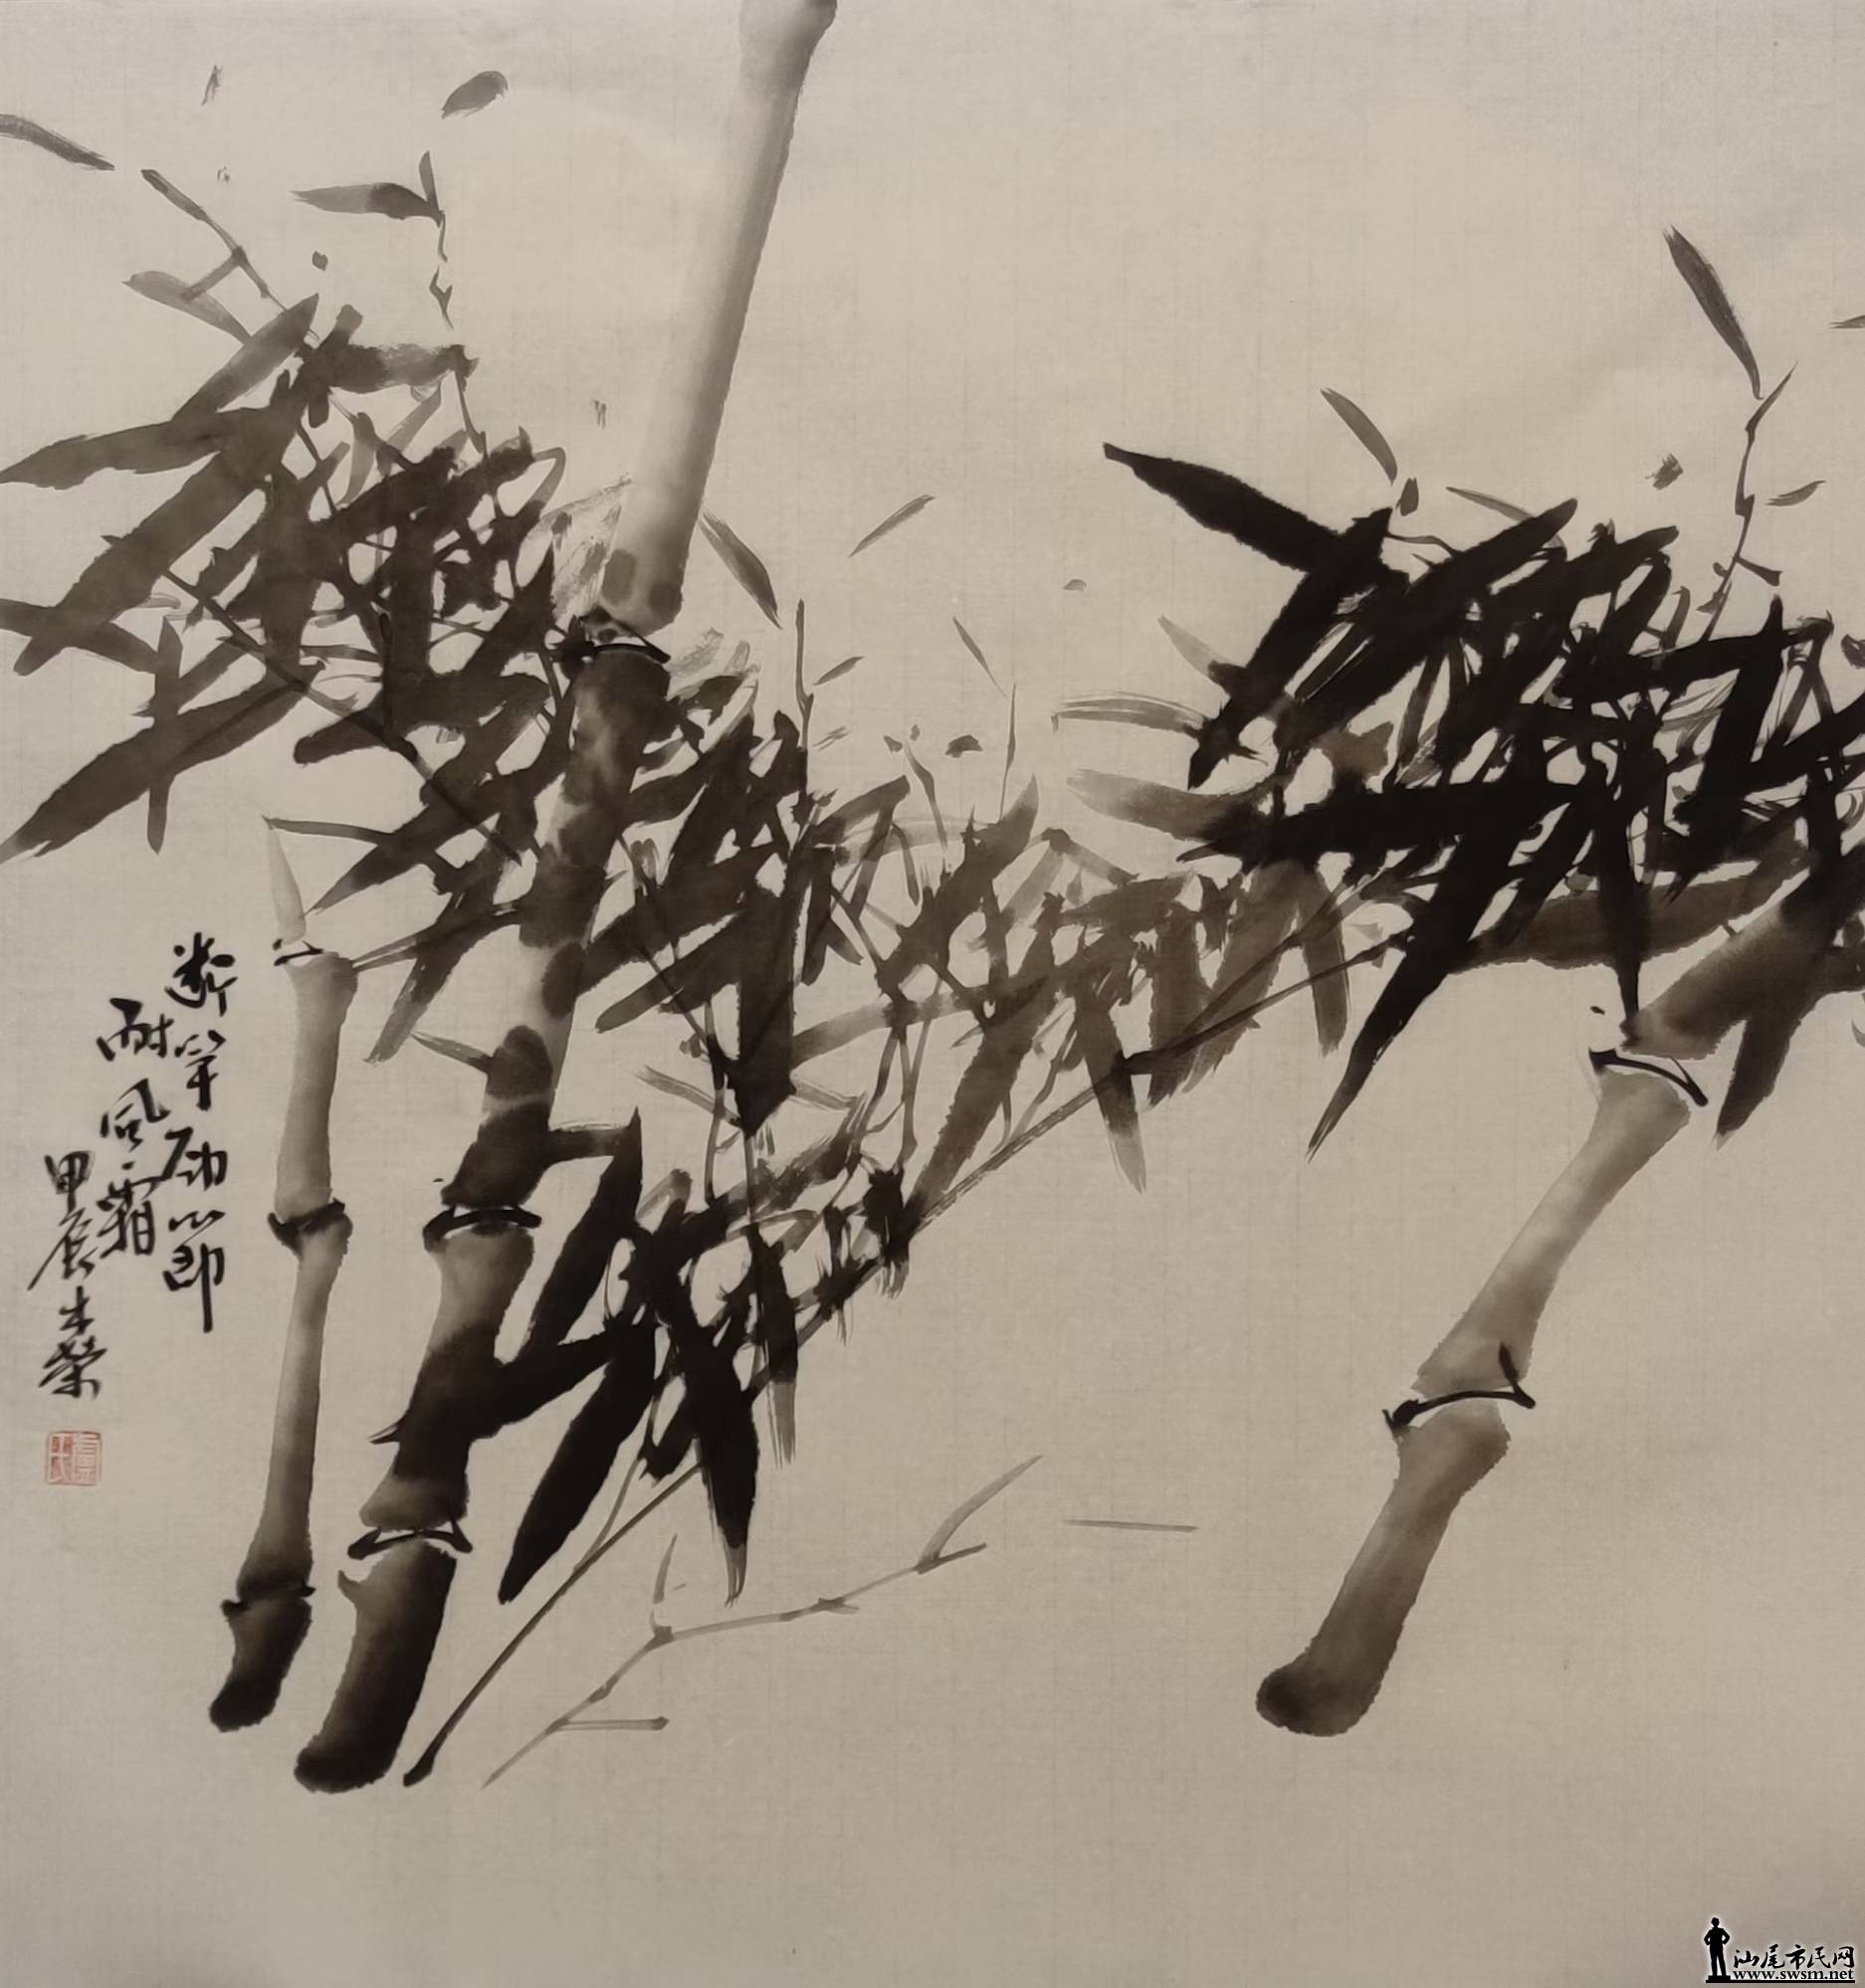 断竿劲節
耐風霜
甲辰
汕尾市民网
www.swsm.net